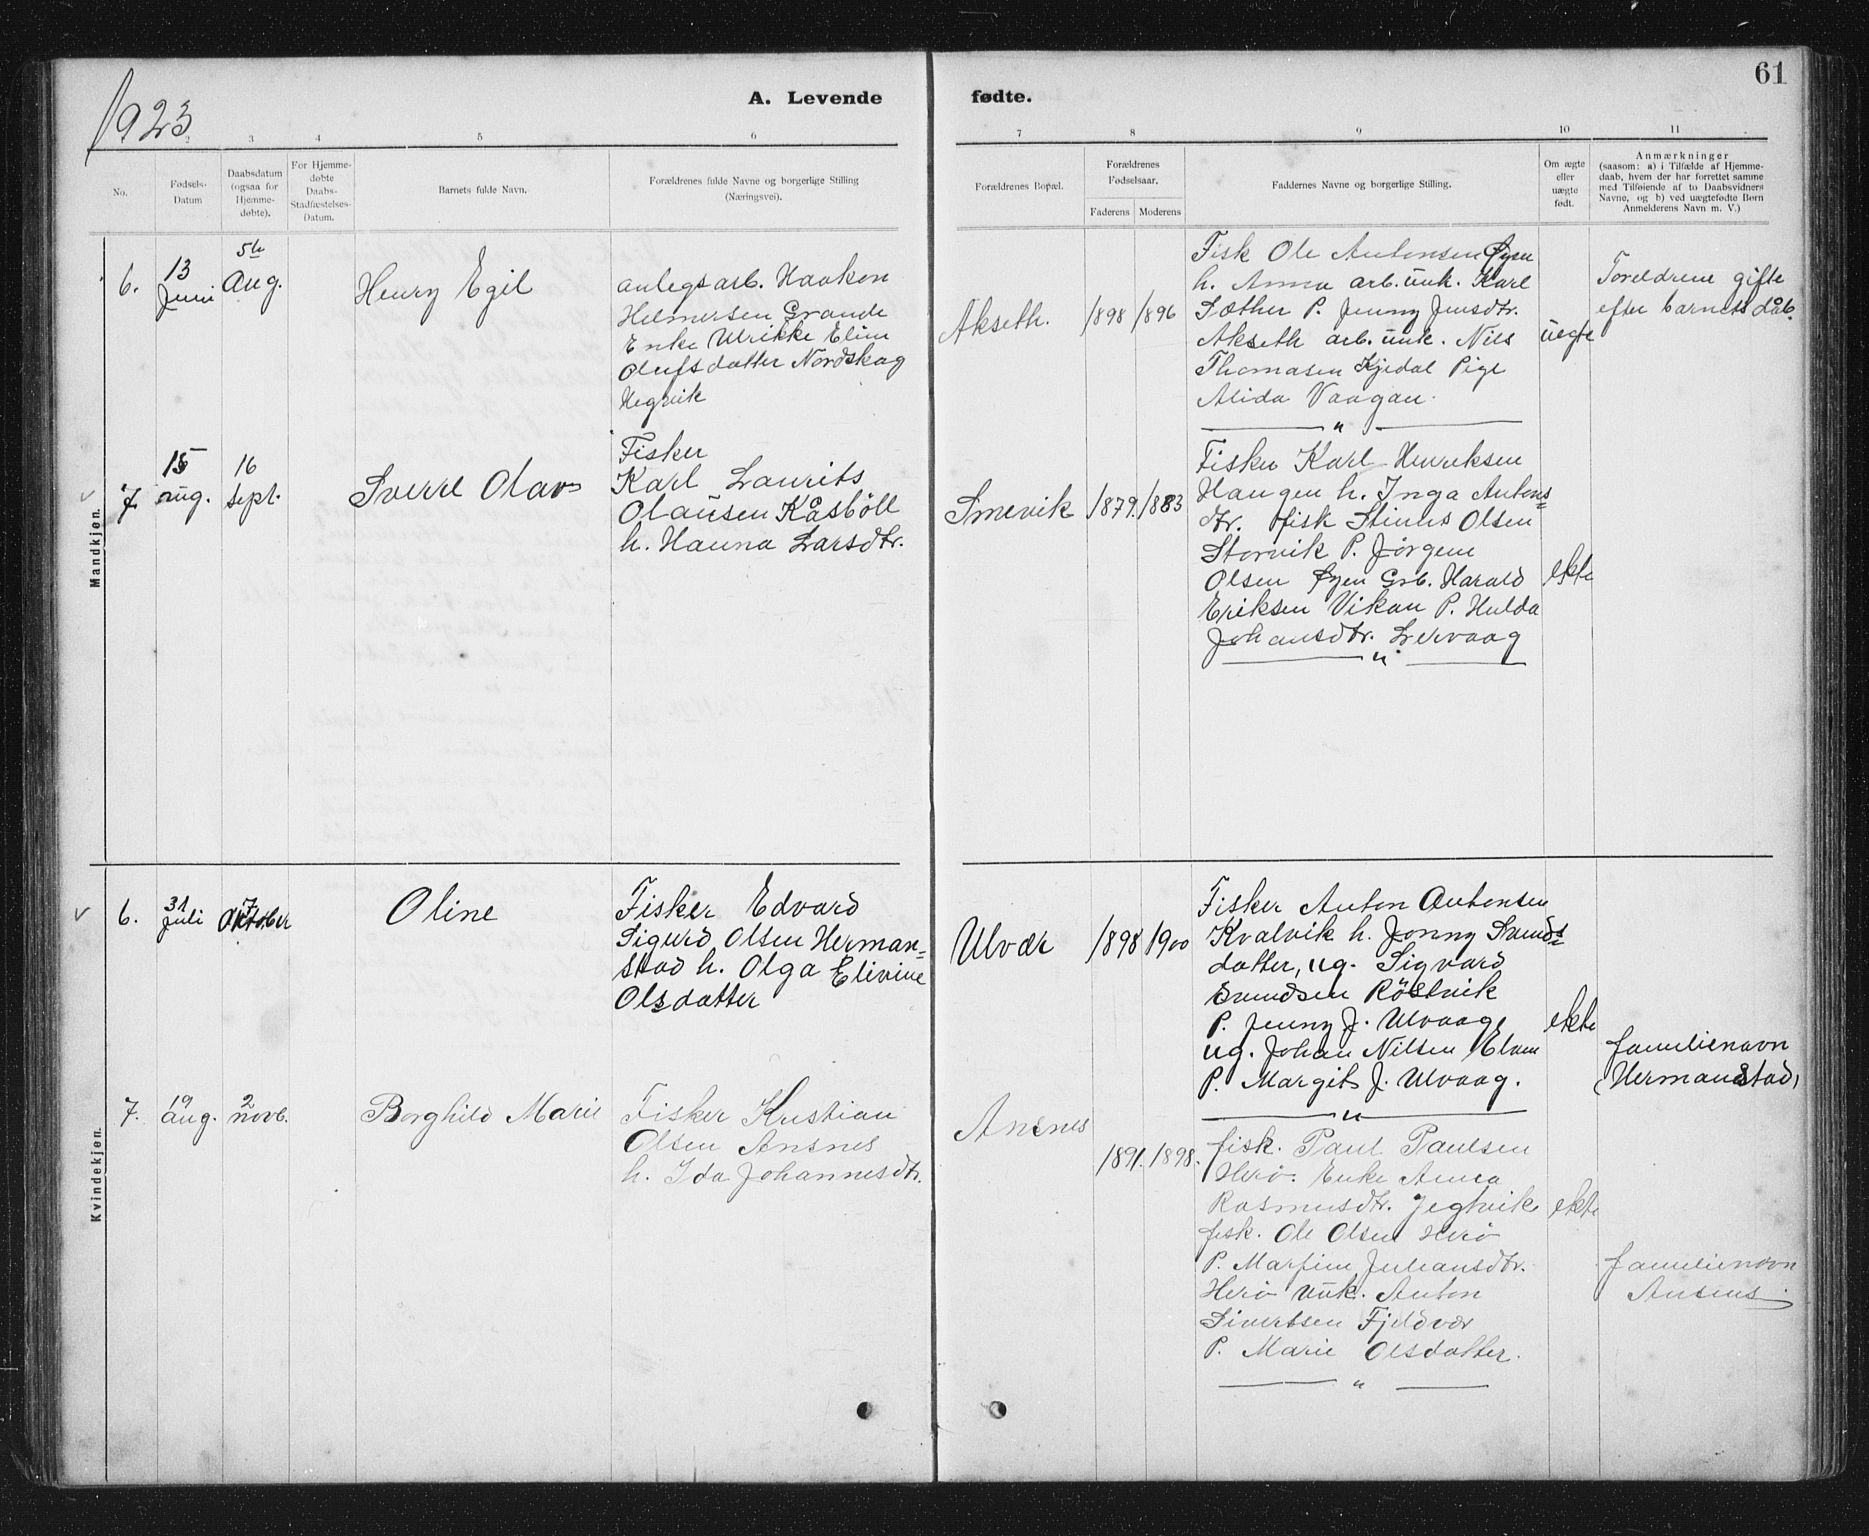 1923
A. Levende fødte.
61
2 3 4 5 6 7 8 9 10 11
No.
Fødsels-
Datum
Daabsdatum
(ogsaa for
Hjemme-
døbte).
For Hjemme-
døbte
Daabs-
Stadfæstelses-
Datum.
Barnets fulde Navn.
Forældrenes fulde Navne og borgerlige Stilling
(Næringsvei).
Forældrenes Bopæl.
Forældrenes
Fødselsaar.
Faderens Moderens
Faddernes Navne og borgerlige Stilling.
Om ægte
eller
uægte
født.
Anmærkninger
(saasom: a) i Tilfælde af Hjemme-
daab, hvem der har forrettet samme
med Tilføiende af to Daabsvidners
Navne, og b) ved uægtefødte Børn
Anmelderens Navn m. V.)
Mandkjøn.
6.
13
Juni
5te
Aug.
Henry Egil
anlegsarb. Haakon
Helmersen Grande
Enke Ulrikke Elin
Olufsdatter Nordskag
Hegvik
Akseth.
1898 1896
Fisk Ole Antonsen Øyen
h. Anna arb. unk. Karl
Sæther P. Jenny Jensdtr.
Akseth arb. unk. Nils
Thomasen Kjedal Pige
Alida Vaagan.
uegte
Foreldrene gifte
efter barnets dåb.
7.
15
aug.
16
sept.
Sverre Olav
Fisker
Karl Laurits
Olausen Kåsböll
h. Hanna Larsdtr.
Smevik
1879. 1883
Fisker Karl Henriksen
Haugen h. Inga Antons=
dtr. fisk Olsen
Storvik P. Jørgine
Olsen Øyen Grb. Harald
Eriksen Vikan P. Hulda
Johansdtr. Lervaag
ekte
Kvindekjøn.
6.
31
Juli
7
Oktober
Oline
Fisker Edvard
Sigurd Olsen Herman=
stad h. Olga Elivine
Olsdatter
Ulvær
1898 1900
Fisker Anton Antonsen
Kvalvik h. Jonny Svends=
datter, ug. Sigvard
Svendsen Röstvik
P. Jenny J. Ulvaag
ug. Johan Nilsen
P. Margit J. Ulvaag.
ekte
familienavn
(Hermanstad)
7.
19
aug.
2
novb.
Borghild Marie
Fisker Kristian
Olsen Ansnes
h. Ida Johannesdtr.
Ansnes
1891. 1898.
fisk. Paul Paulsen
Herø. Enke Anna
Rasmusdtr. Jegtvik
fisk. Ole Olsen Herø
P. Marfine Juliansdtr.
Herø unk. Anton
Sivertsen Fjeldvær
P. Marie Olsdatter.
ekte
familienavn
Ansnes.